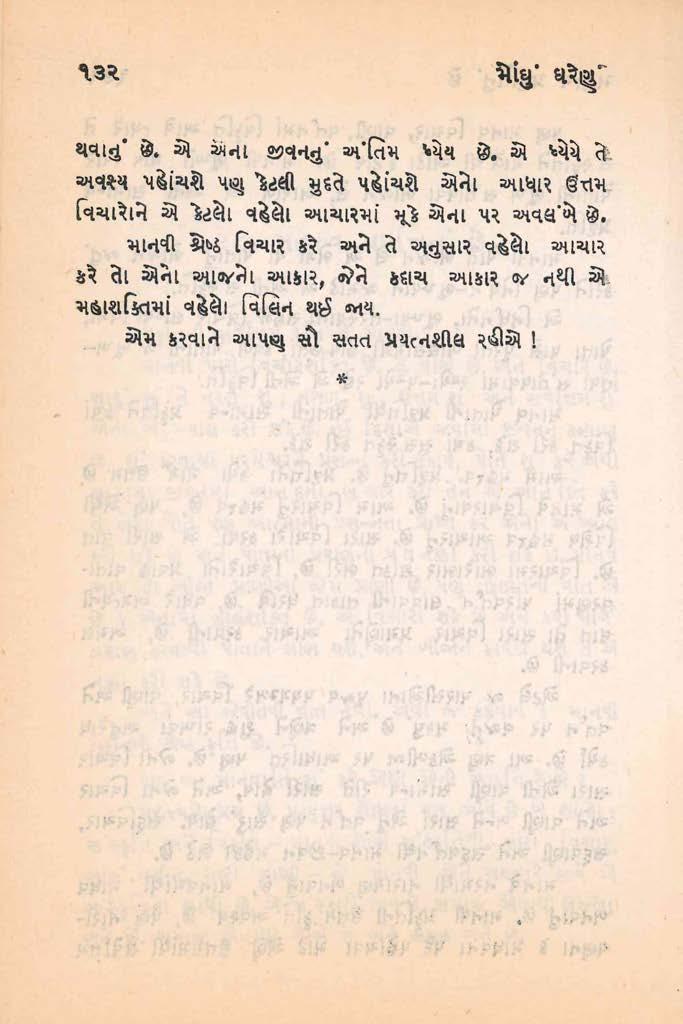 ૧૩૨ મોંઘું ઘરેણું
થવાનું છે. એ એના જીવનનું અંતિમ ધ્યેય છે. એ ધ્યેયે તે
અવશ્ય પહોંચશે પણ કેટલી મુદતે પહોંચશે એનો આધાર ઉત્તમ
વિચારોને એ કેટલો વહેલો આચારમાં મૂકે એના પર અવલંબે છે.
માનવી શ્રેષ્ઠ વિચાર કરે અને તે અનુસાર વહેલો આચાર
કરે તો એનો આજનો આકાર, જેને કદાચ આકાર જ નથી એ
મહાશક્તિમાં વહેલો વિલિન થઈ જાય.
એમ કરવાને આપણુ સૌ સતત પ્રયત્નશીલ રહીએ !
*